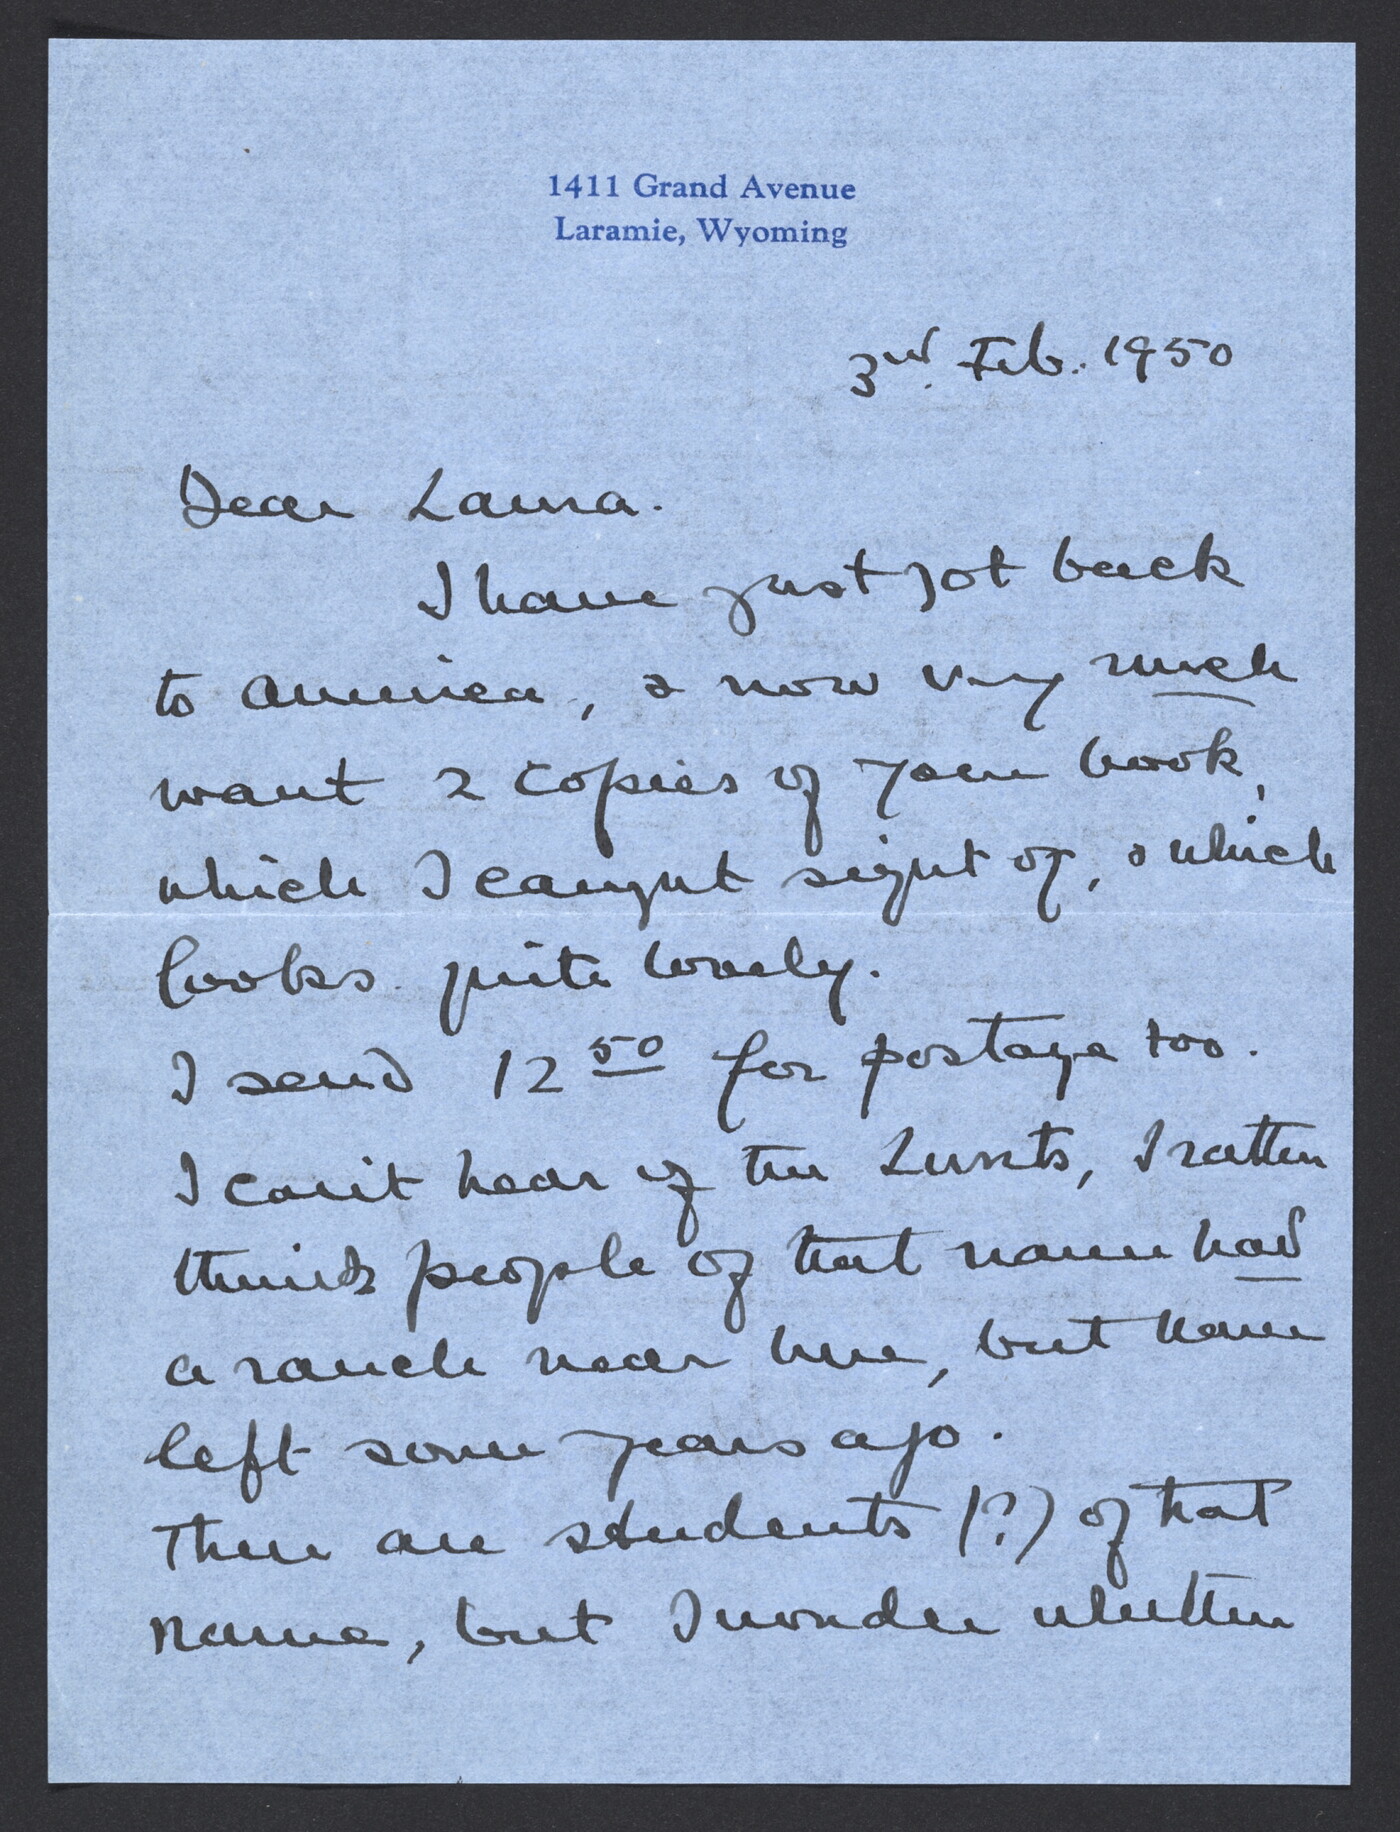 1411 Grand Avenue
Laramie, Wyoming
3rd. Feb. 1950
Dear Laura.
I have just got back
to America, & now very much
want 2 copies of your book,
which I caught sight of, & which
looks quite lovely.
I send 12 50 for postage too.
I can't hear of the Lunts, I rather
think people of that name had
a ranch near here, but have
left some years ago.
There are students (?) of that
name, but I wonder whether